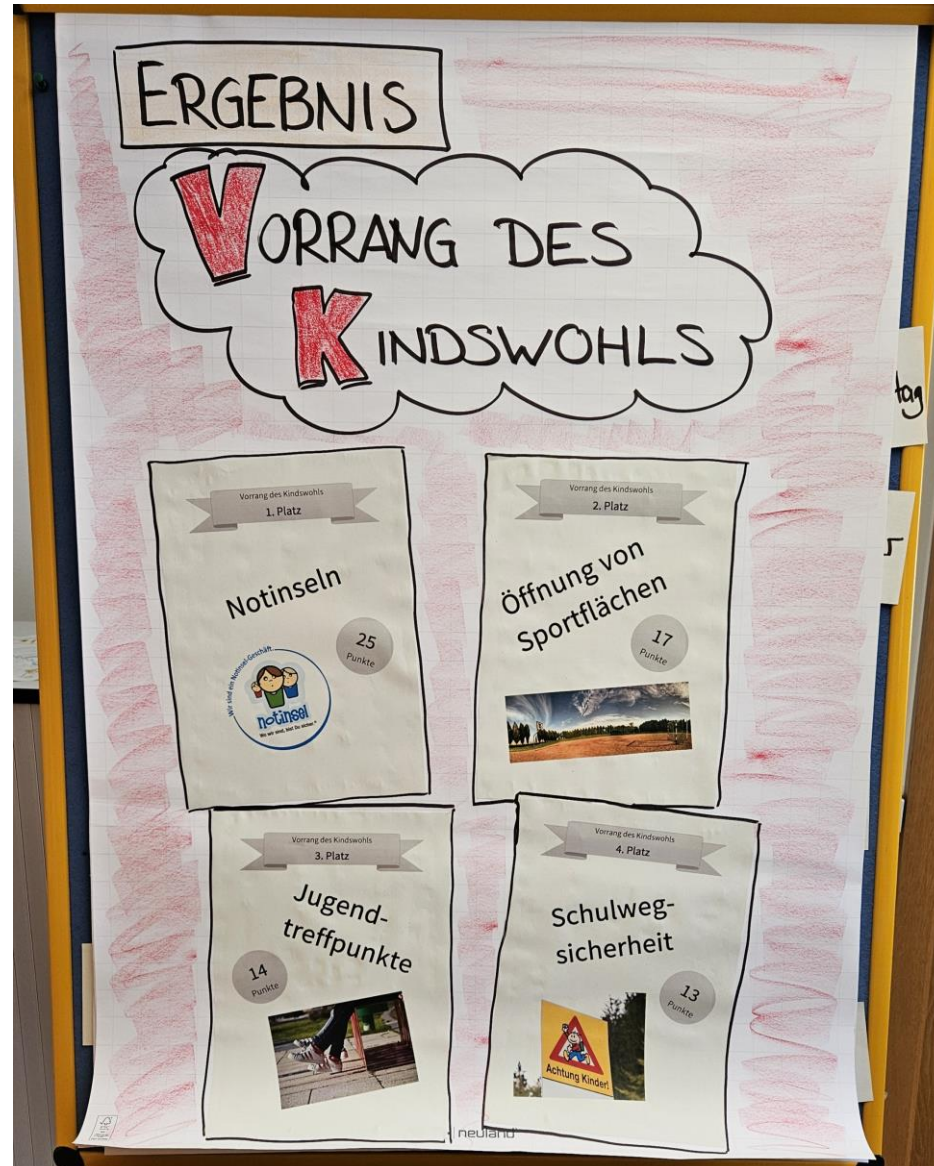 ERGEBNIS
VORRANG DES
KINDSWOHLS
tag
Vorrang des Kindswohls
1. Platz
Notinseln
25
Punkte
Wir sind ein Notinsel-Geschäft.
notinsel
Wo wir sind, bist Du sicher.
Vorrang des Kindswohls
2. Platz
Öffnung von
Sportflächen
17
Punkte
Vorrang des Kindswohls
3. Platz
Jugend-
treffpunkte
14
Punkte
Vorrang des Kindswohls
4. Platz
Schulweg-
sicherheit
13
Punkte
Achtung Kinder!
neuland